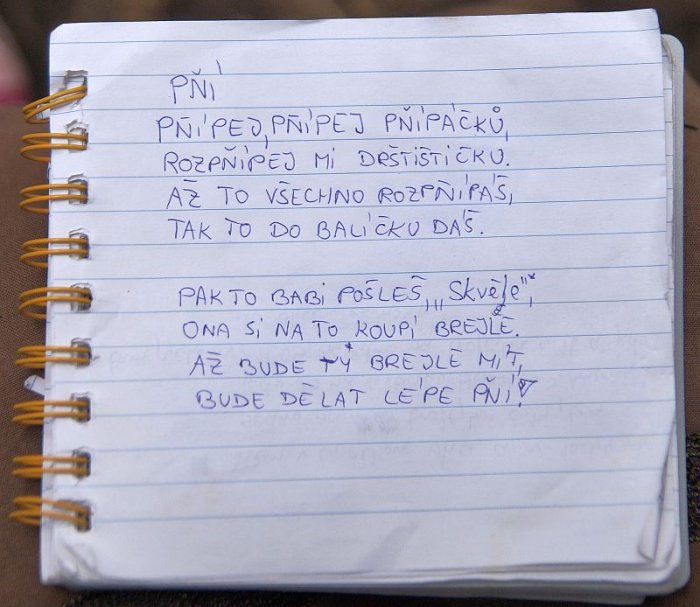 PŇÍ
PŇÍPEJ, PŇÍPEJ PŇÍPÁČKŮ,
ROZPŇÍPEJ MI DRŠTIŠTIČKU.
AŽ TO VŠECHNO ROZPŇÍPÁŠ,
TAK TO DO BALÍČKU DÁŠ.
PAK TO BABI POŠLEŠ, „„Skvěle"*,
ONA SI NA TO KOUPÍ BREJLE.
AŽ BUDE TY* BREJLE MÍT,
BUDE DĚLAT LÉPE PŇÍ!